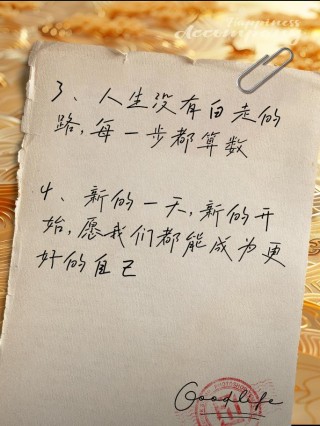 Happiness
Accompany
3、人生没有白走的
路,每一步都算数
4、新的一天,新的开
始,愿我们都能成为更
好的自己
Goodlife